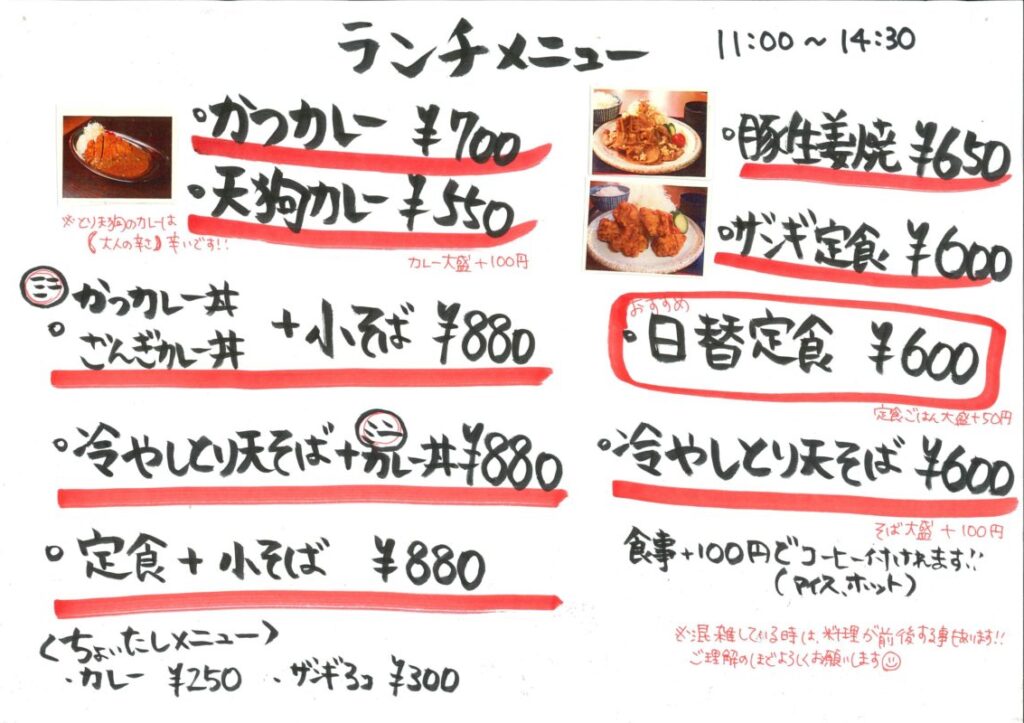 ランチメニュー 11:00～14:30
・かつカレー ¥700
・天狗カレー ¥550
※とり天狗のカレーは
《大人の辛さ》辛いです!!
カレー大盛+100円
ミニ
・かつカレー丼
ざんぎカレー丼
+小そば ¥880
・冷やしとり天そば+ミニカレー丼¥880
・定食+小そば ¥880
〈ちょいたしメニュー〉
・カレー ¥250 ・ザンギ3コ ¥300
・豚生姜焼 ¥650
・ザンギ定食 ¥600
おすすめ
・日替定食 ¥600
定食ごはん大盛+50円
・冷やしとり天そば ¥600
そば大盛+100円
食事+100円でコーヒー付けれます!!
(アイス、ホット)
※混雑している時は、料理が前後する事もあります!!
ご理解のほどよろしくお願いします